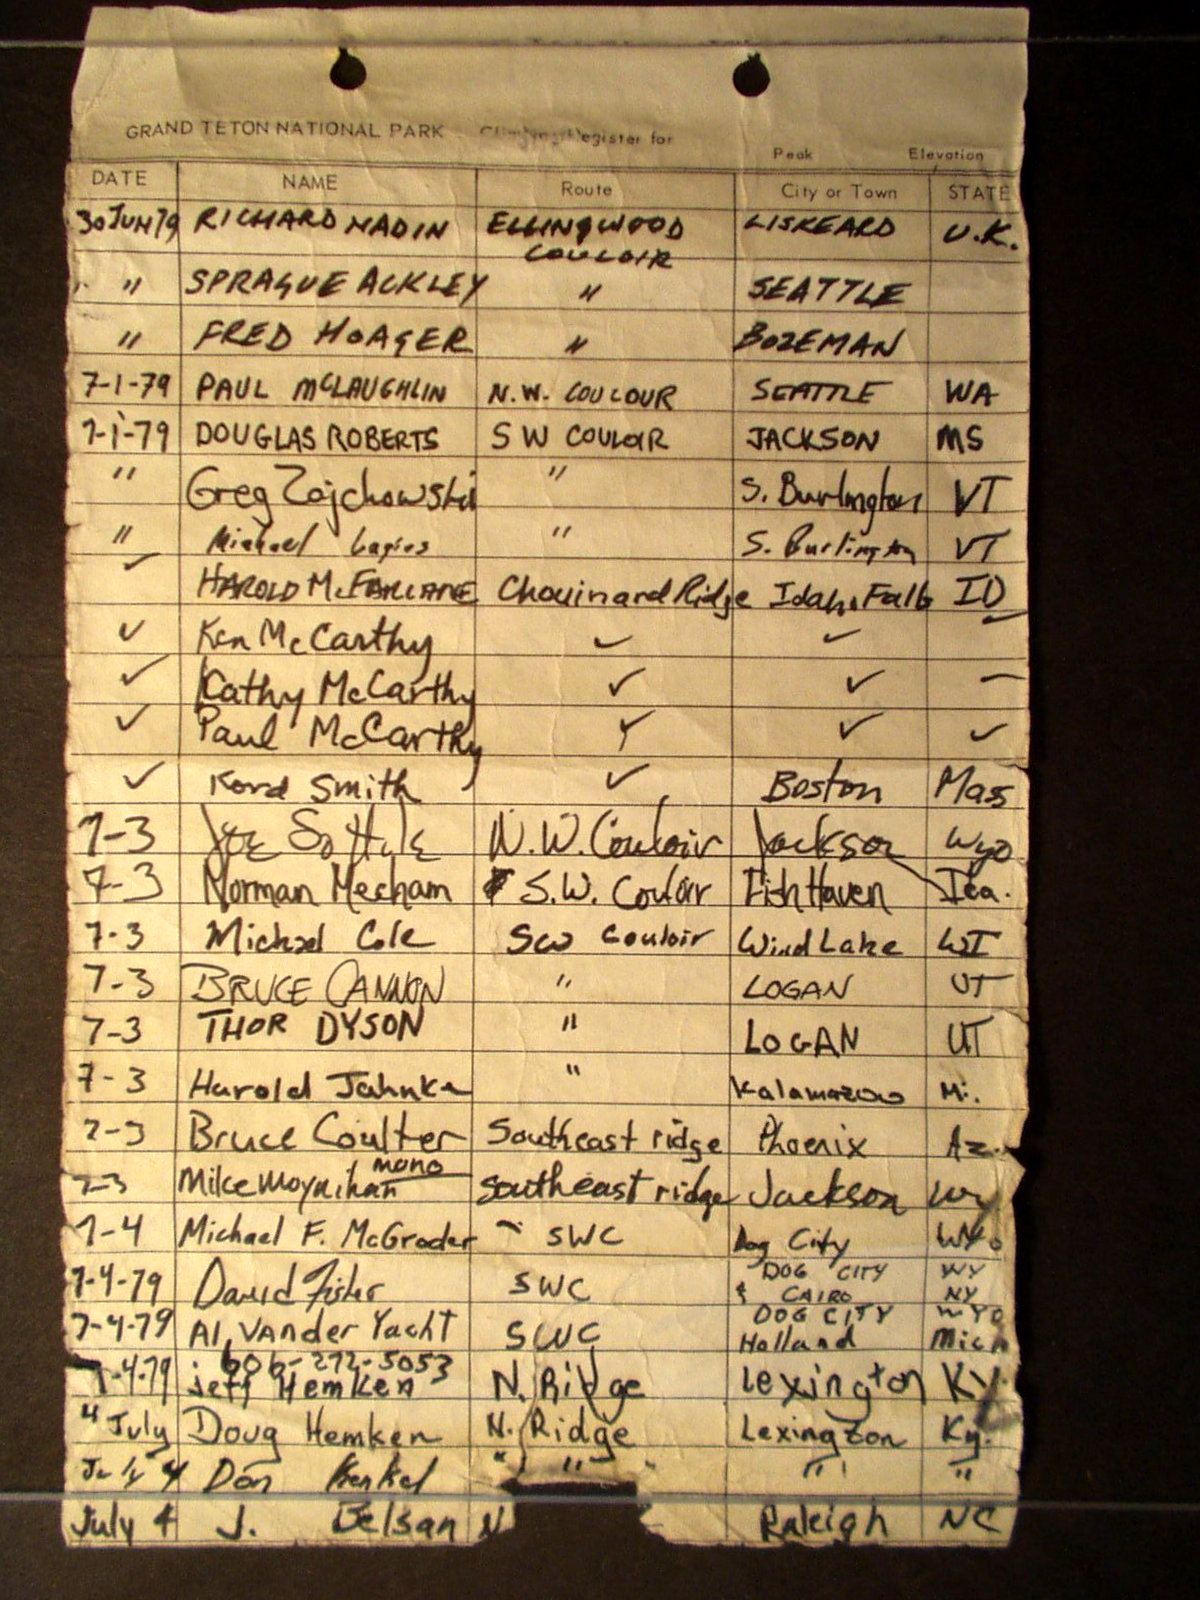 GRAND TETON NATIONAL PARK Climbing Register for
Peak Elevation
DATE NAME Route City or Town STATE
30 JUN 79 RICHARD NADIN ELLINGWOOD COULOIR LISKEARD U.K.
" SPRAGUE ACKLEY " SEATTLE
" FRED HOAGER " BOZEMAN
7-1-79 PAUL MCLAUGHLIN N.W. COULOUR SEATTLE WA
7-1-79 DOUGLAS ROBERTS S W COULOIR JACKSON MS
" Greg Zajchowski " S. Burlington VT
" Michael " S. Burlington VT
✓ HAROLD McFARLANE Chouinard Ridge Idaho Falls ID
✓ Ken McCarthy ✓ ✓ ✓
✓ Cathy McCarthy ✓ ✓ –
✓ Paul McCarthy ✓ ✓ ✓
✓ Kord Smith ✓ Boston Mass
7-3 Joe N.W. Couloir Jackson Wyo
7-3 Norman Mecham S.W. Couloir Fish Haven Ida.
7-3 Michael Cole SW Couloir Wind Lake WI
7-3 BRUCE CANNON " LOGAN UT
7-3 THOR DYSON " LOGAN UT
7-3 Harold Jahnke " Kalamazoo Mi.
7-3 Bruce Coulter Southeast ridge Phoenix Az.
7-3 Mike Moynihan mono Southeast ridge Jackson Wy
7-4 Michael F. McGroder SWC Dog City WYo
7-4-79 David Fisher SWC DOG CITY WY
& CAIRO NY
7-4-79 Al VanderYacht SWC DOG CITY WYO
Holland Mich
606-272-5053
7-4-79 Jeff Hemken N. Ridge Lexington Ky.
4 July Doug Hemken N. Ridge Lexington Ky.
July 4 Don Henkel " " " "
July 4 J. Belsan N Raleigh NC